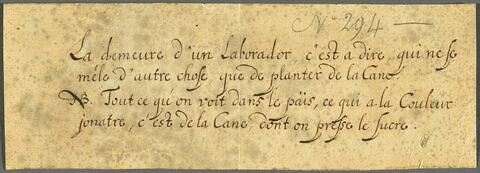 N° 294 —
La demeure d'un Laborador, c'est a dire, qui ne se
mêle d'autre chose que de planter de la Cane.
NB. Tout ce qu'on voit dans le païs, ce qui a la Couleur
jonatre, c'est de la Cane dont on presse le sucre.